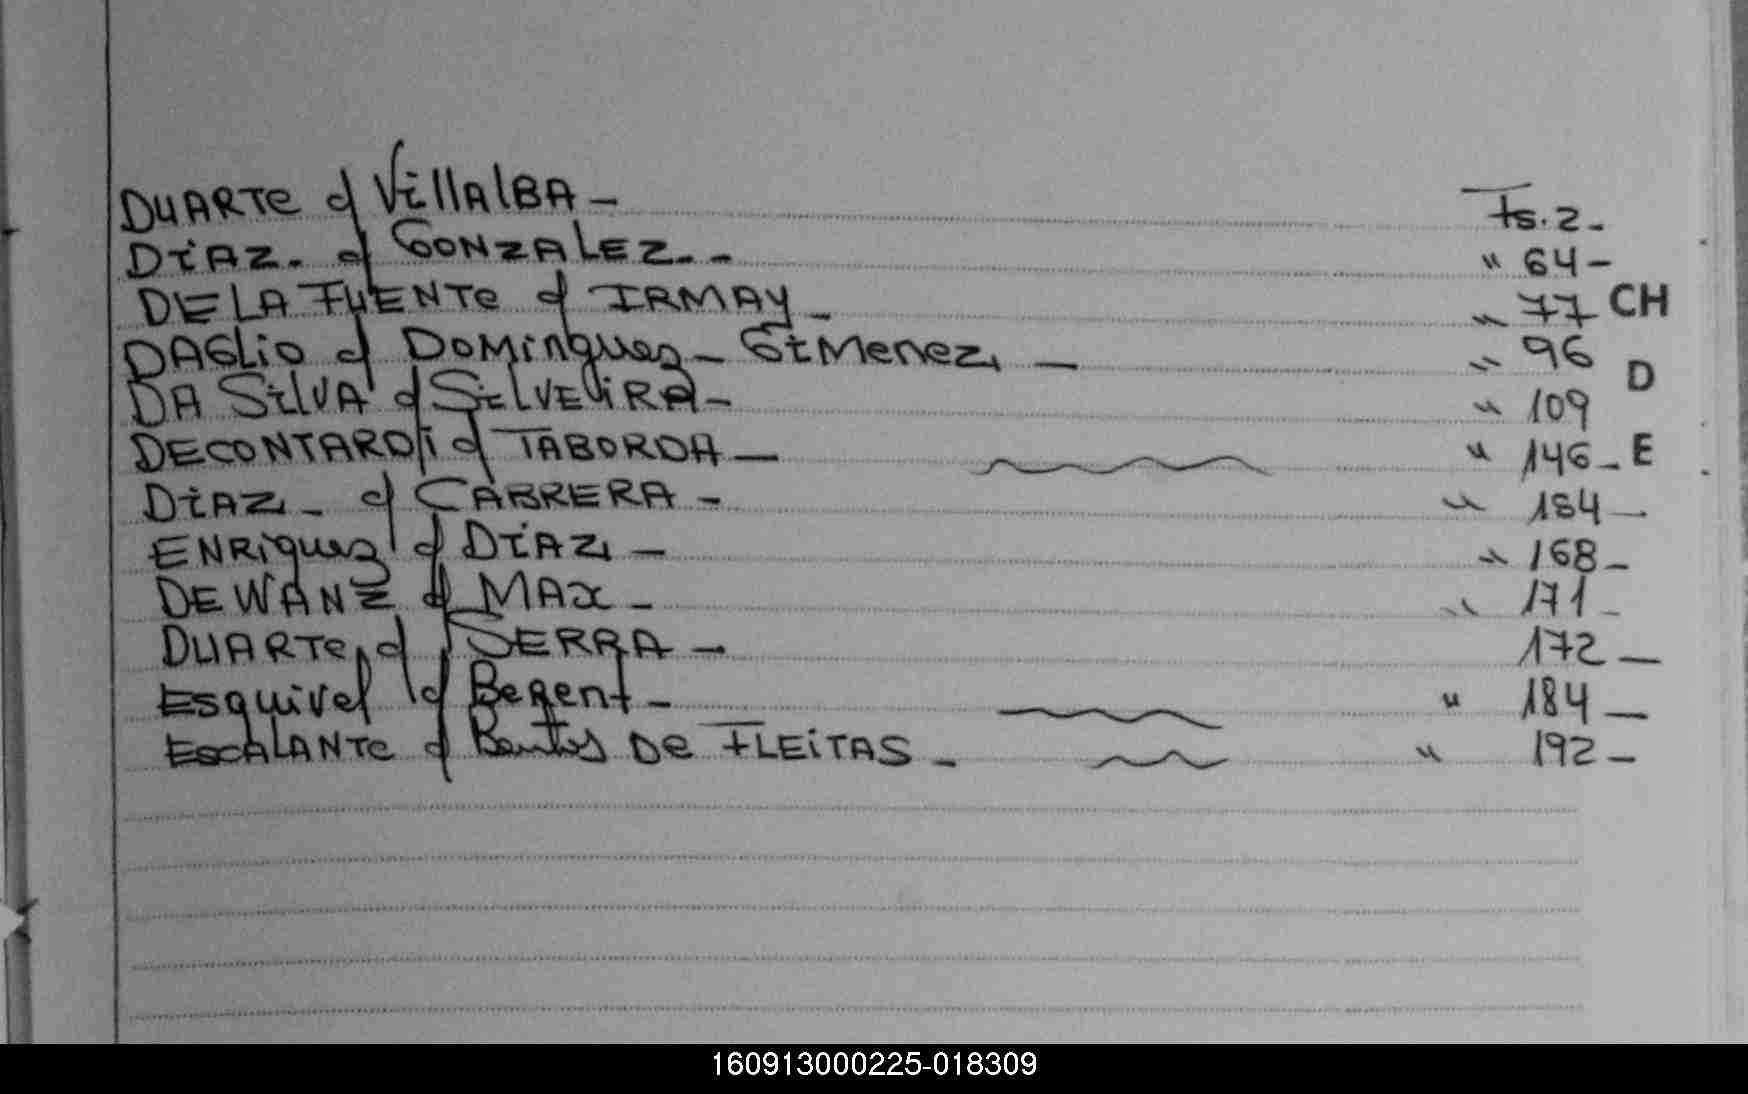 DUARTE c/ VillAlBA - Fs. 2 -
DiAZ. c/ GONZALEZ - - " 64 -
DE LA FUENTE c/ IRMAY - " 77 CH
DAGLIO c/ DOMinguez - GiMenez - " 96
D
DA SilVA c/ SiLVEiRA - " 109
DECONTARDI c/ TABORDA - " 146 - E
DiAZ - c/ CABRERA - " 154 -
ENRiquez c/ DiAZ - " 168 -
DE WANZ c/ MAX - " 171 -
DUARTE c/ SERRA - 172 -
Esquivel c/ - " 184 -
ESCALANTE c/ Bentos DE FLEiTAS - " 192 -
160913000225-018309